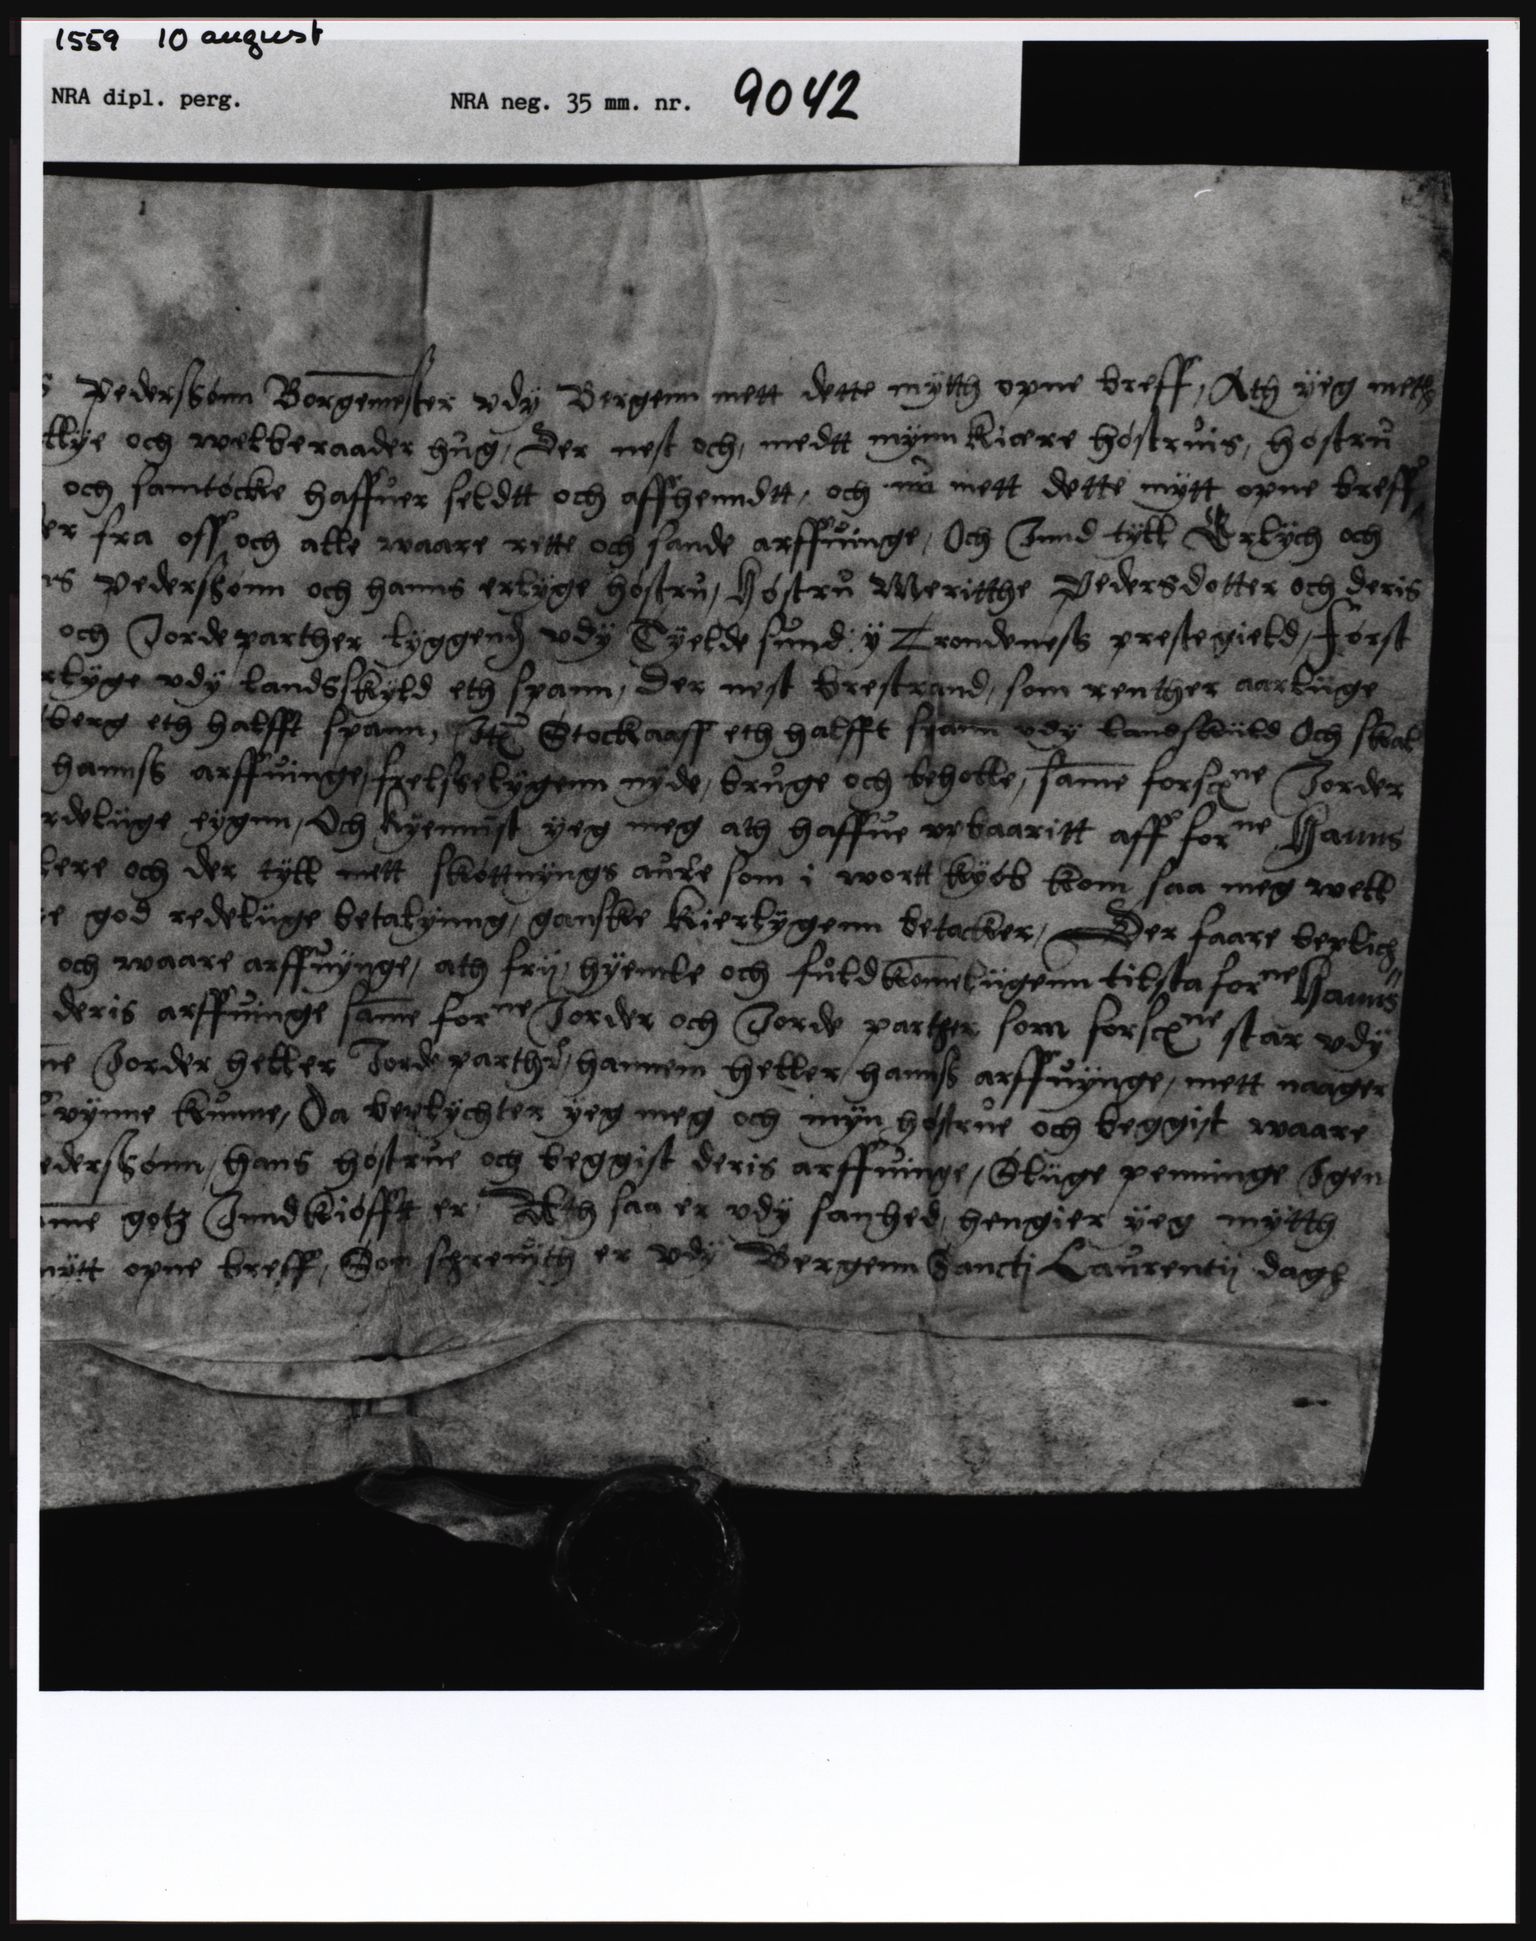 1559 10 august
NRA dipl. perg. NRA neg. 35 mm. nr. 9042
s Pederssønn Borgemester vdÿ Bergenn mett dette mÿtth opne breff, Ath ÿeg meth
llÿe och welberaader hůg, Der nest och, medtt mÿnn kiære høstrůis, høstrů
och samtøcke haffůer seldtt och affhenndtt, och nů mett dette mÿtt opne breff
er fra oss och alle waare rette och sande arffůinge, Och Innd tÿll Erlÿch och
ns Pederssønn och hanns erlÿge høstrů, Høstrů Meritthe Pedersdotter och deris
och Jordeparther lÿggend vdÿ Tÿeldesůnd ÿ Trondeness prestegield, Først
rlÿge vdÿ landsskÿld eth spann, Der nest brestrand, som renther aarlüge
berg eth halfft spann, Jtm Stockaass eth halfft spann vdÿ landskÿld Och skal
hannss arffůinge, frelsselÿgenn nÿde, brůge och beholle, same forscne Jorder
rdelüge eÿgnn, Och kÿennist ÿeg meg ath haffůe vpbaaritt aff forne Hanns
lere och der tÿll mett skøttnÿngs aůre som i wortt kÿøb kom saa meg well
ge god redelüge betalÿnng, ganske kierlÿgenn betacker, Der faare beplich
och waare arffůÿnge, ath frÿ, hÿemle och fůldkomelügenn tilsta forne Hanns
deris arffůinge same forne Jorder och Jorde parther som forscne står vdÿ
ne Jorder heller Jordeparther, hannem heller hannss arffůÿnge, mett naager
vÿnne kůnne, Da beplÿchter ÿeg meg och mÿn høstrůe och beggist waare
ederssønn, hans høstrůe och beggist deris arffůinge, Slüge penninge Igen
ame gotz Inndkiøfft er, Ath saa er vdÿ sanhed, hengier ÿeg mÿtth
mÿtt opne breff, Som schreůith er vdÿ Bergenn Sancti Laůrentij dagh